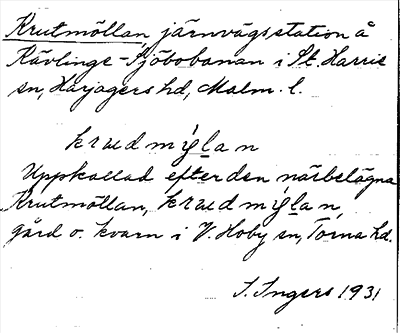 Krutmöllan järnvägsstation å
Kävlinge-Sjöbobanan i St. Harrie
sn, Harjagers hd, Malm. l.
krudmýlan
Uppkallad efter den närbelägna
Krutmöllan, krudmýlan,
gård o. kvarn i V. Hoby sn, Torna hd.
I. Ingers 1931